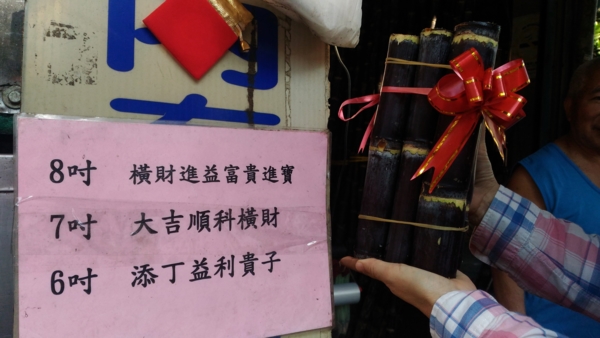 8吋 橫財進益富貴進寶
7吋 大吉順科橫財
6吋 添丁益利貴子